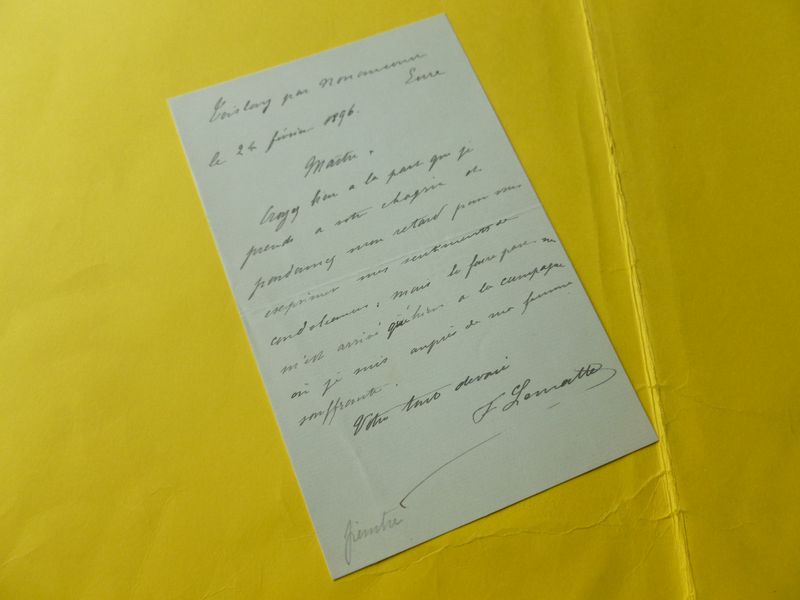 par Nonancourt
Eure
le 24 février 1896.
Maître,
Croyez bien a la part que je
prends a votre chagrin et
pardonnez mon retard pour vous
exprimer mes sentiments de
condoléances, mais le faire part ne
m'est arrivé qu'hier a la campagne
où je suis auprès de ma femme
souffrante.
Votre tout dévoué
F. Lematte
peintre